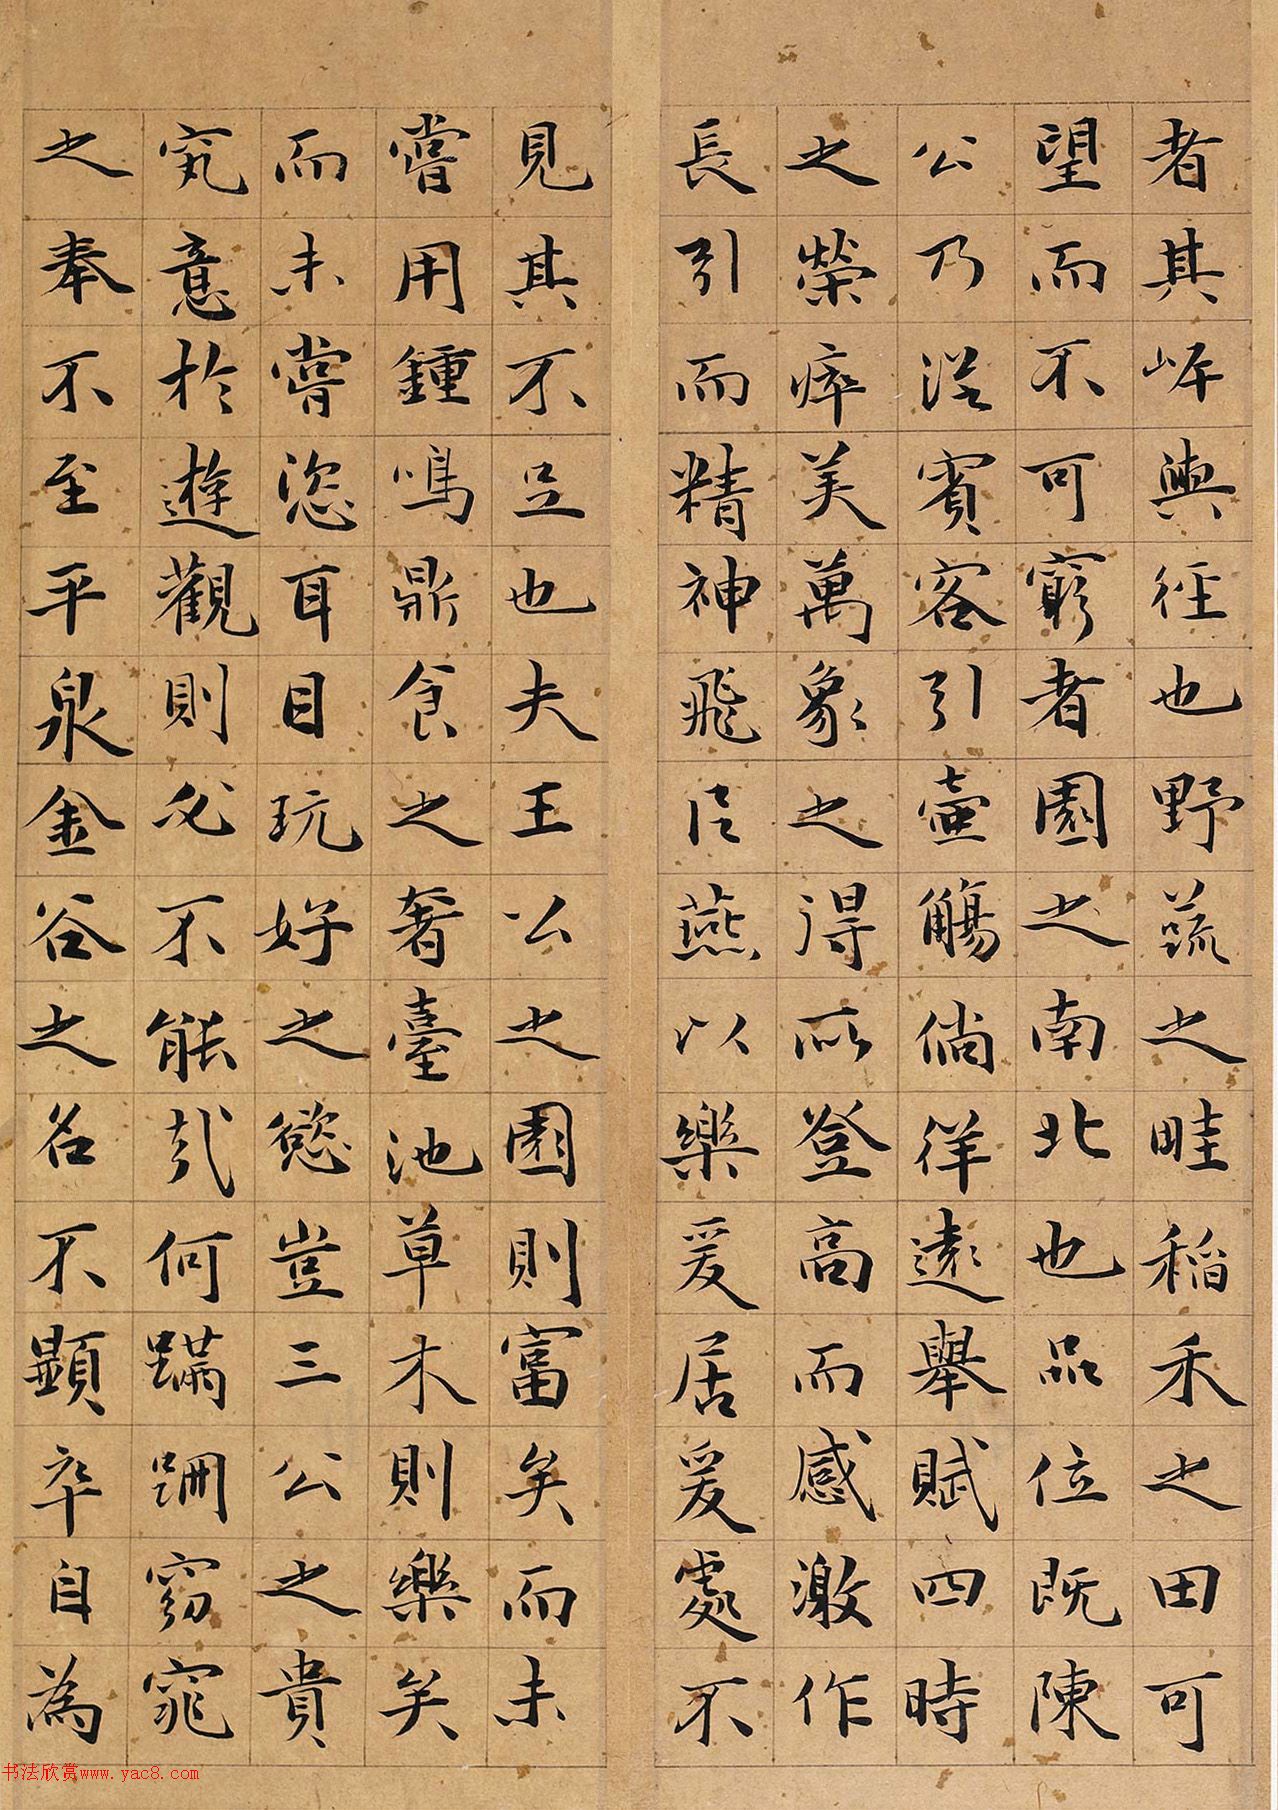 者其岯與徑也野蔬之畦稻禾之田可
望而不可窮者園之南北也品位既陳
公乃從賓客引壺觴倘徉遠舉賦四時
之榮瘁美萬象之得所登高而感激作
長引而精神飛 燕以樂爰居爰處不
見其不足也夫王公之園則富矣而未
嘗用鍾鳴鼎食之奢臺池草木則樂矣
而未嘗恣耳目玩好之慾豈三公之貴
究意於遊觀則必不能哉何蹣跚窈窕
之奉不至平泉金谷之名不顯卒自為
书法欣赏www.yac8.com